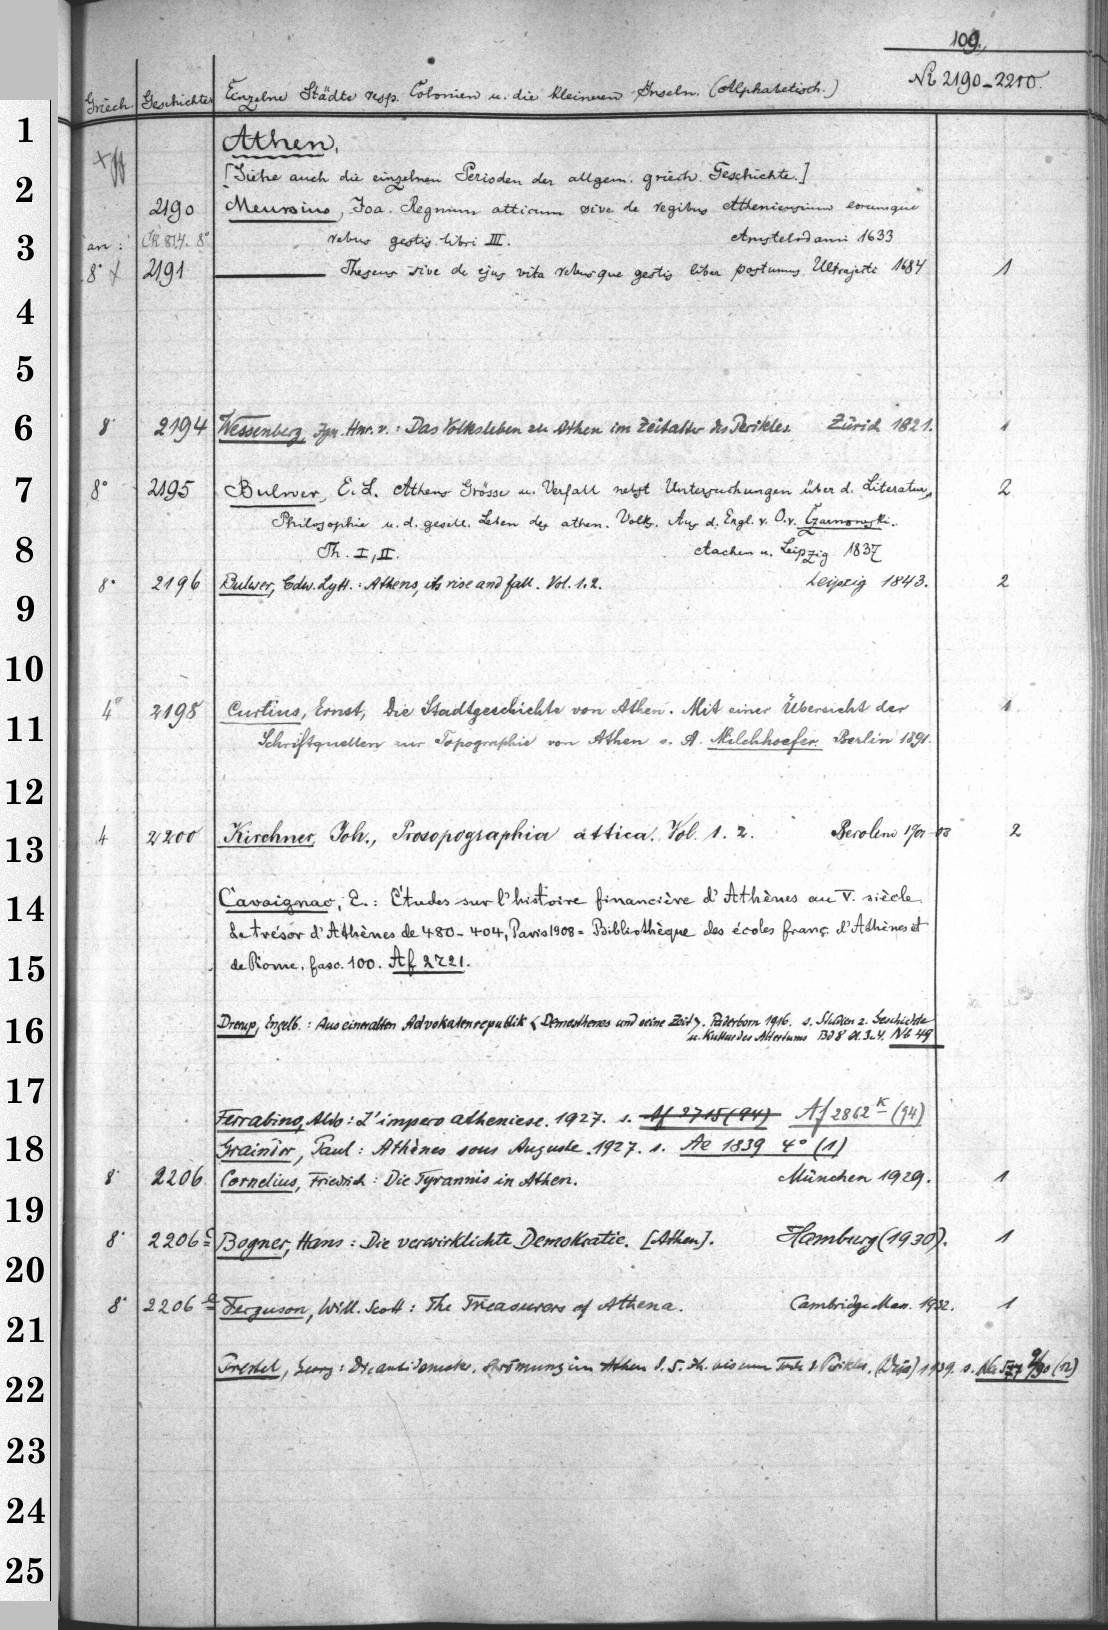 109.
Nr 2190-2210.
Griech. Geschichte Einzelne Städte resp. Colonien u. die kleineren Inseln. (Alphabetisch.)
1
Athen.
2
[Siehe auch die einzelnen Perioden der allgem. griech. Geschichte.]
2190 Meursius, Joa. Regnum atticum sive de regibus Atheniensium eorumque
3
an: 8° rebus gestis libri III. Amstelodami 1633
8° 2191 ——— Theseus sive de ejus vita rebusque gestis liber postumus Ultrajecti 1684 1
4
5
6
8° 2194 Wessenberg, Ign. Hnr. v.: Das Volksleben zu Athen im Zeitalter des Perikles. Zürich 1821. 1
7
8° 2195 Bulwer, E. L. Athens Grösse u. Verfall nebst Untersuchungen über d. Literatur, 2
Philosophie u. d. gesell. Leben des athen. Volks. Aus d. Engl. v. O. v. Czarnowski.
8
Th. I, II. Aachen u. Leipzig 1837
8° 2196 Bulwer, Edw. Lytt.: Athens, its rise and fall. Vol. 1.2. Leipzig 1843. 2
9
10
4° 2198 Curtius, Ernst, Die Stadtgeschichte von Athen. Mit einer Übersicht der 1
11
Schriftquellen zur Topographie von Athen v. A. Milchhoefer. Berlin 1891.
12
4 2200 Kirchner, Joh., Prosopographia attica. Vol. 1. 2. Berolini 1901-03 2
13
14
Cavaignac, E.: Études sur l'histoire financière d'Athènes au V. siècle.
Le trésor d'Athènes de 480-404, Paris 1908 = Bibliothèque des écoles franç. d'Athènes et
15
de Rome. fasc. 100. Af 2721.
16
Drerup, Engelb.: Aus einer alten Advokatenrepublik <Demosthenes und seine Zeit>. Paderborn 1916. s. Studien z. Geschichte
u. Kultur des Altertums Bd 8 H. 3u4. Nb 49
17
Ferrabino, Aldo: L'impero ateniese. 1927. s. Af 2715 (94) Af 2862 K (94)
18
Graindor, Paul: Athènes sous Auguste. 1927. s. Ae 1839 4° (1)
8° 2206 Cornelius, Friedrich: Die Tyrannis in Athen. München 1929. 1
19
8° 2206 c Bogner, Hans: Die verwirklichte Demokratie. [Athen]. Hamburg (1930). 1
20
8° 2206 e Ferguson, Will. Scott: The Treasurers of Athena. Cambridge Mass. 1932. 1
21
Prestel, Georg: Die antidemokr. Strömung im Athen d. 5. Jh. bis zum Tode d. Perikles. (Diss) 1939. s.
22
23
24
25